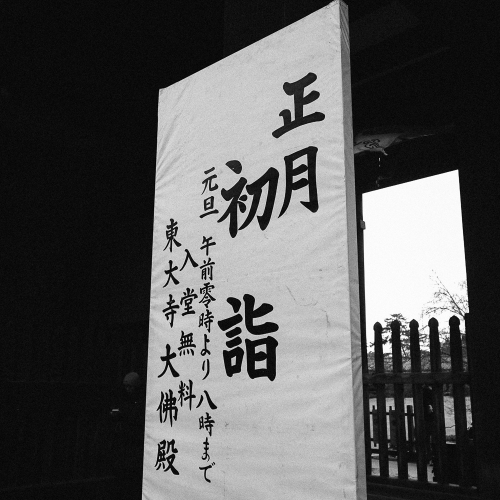 正月
初詣
元旦 午前零時より八時まで
入堂無料
東大寺大佛殿